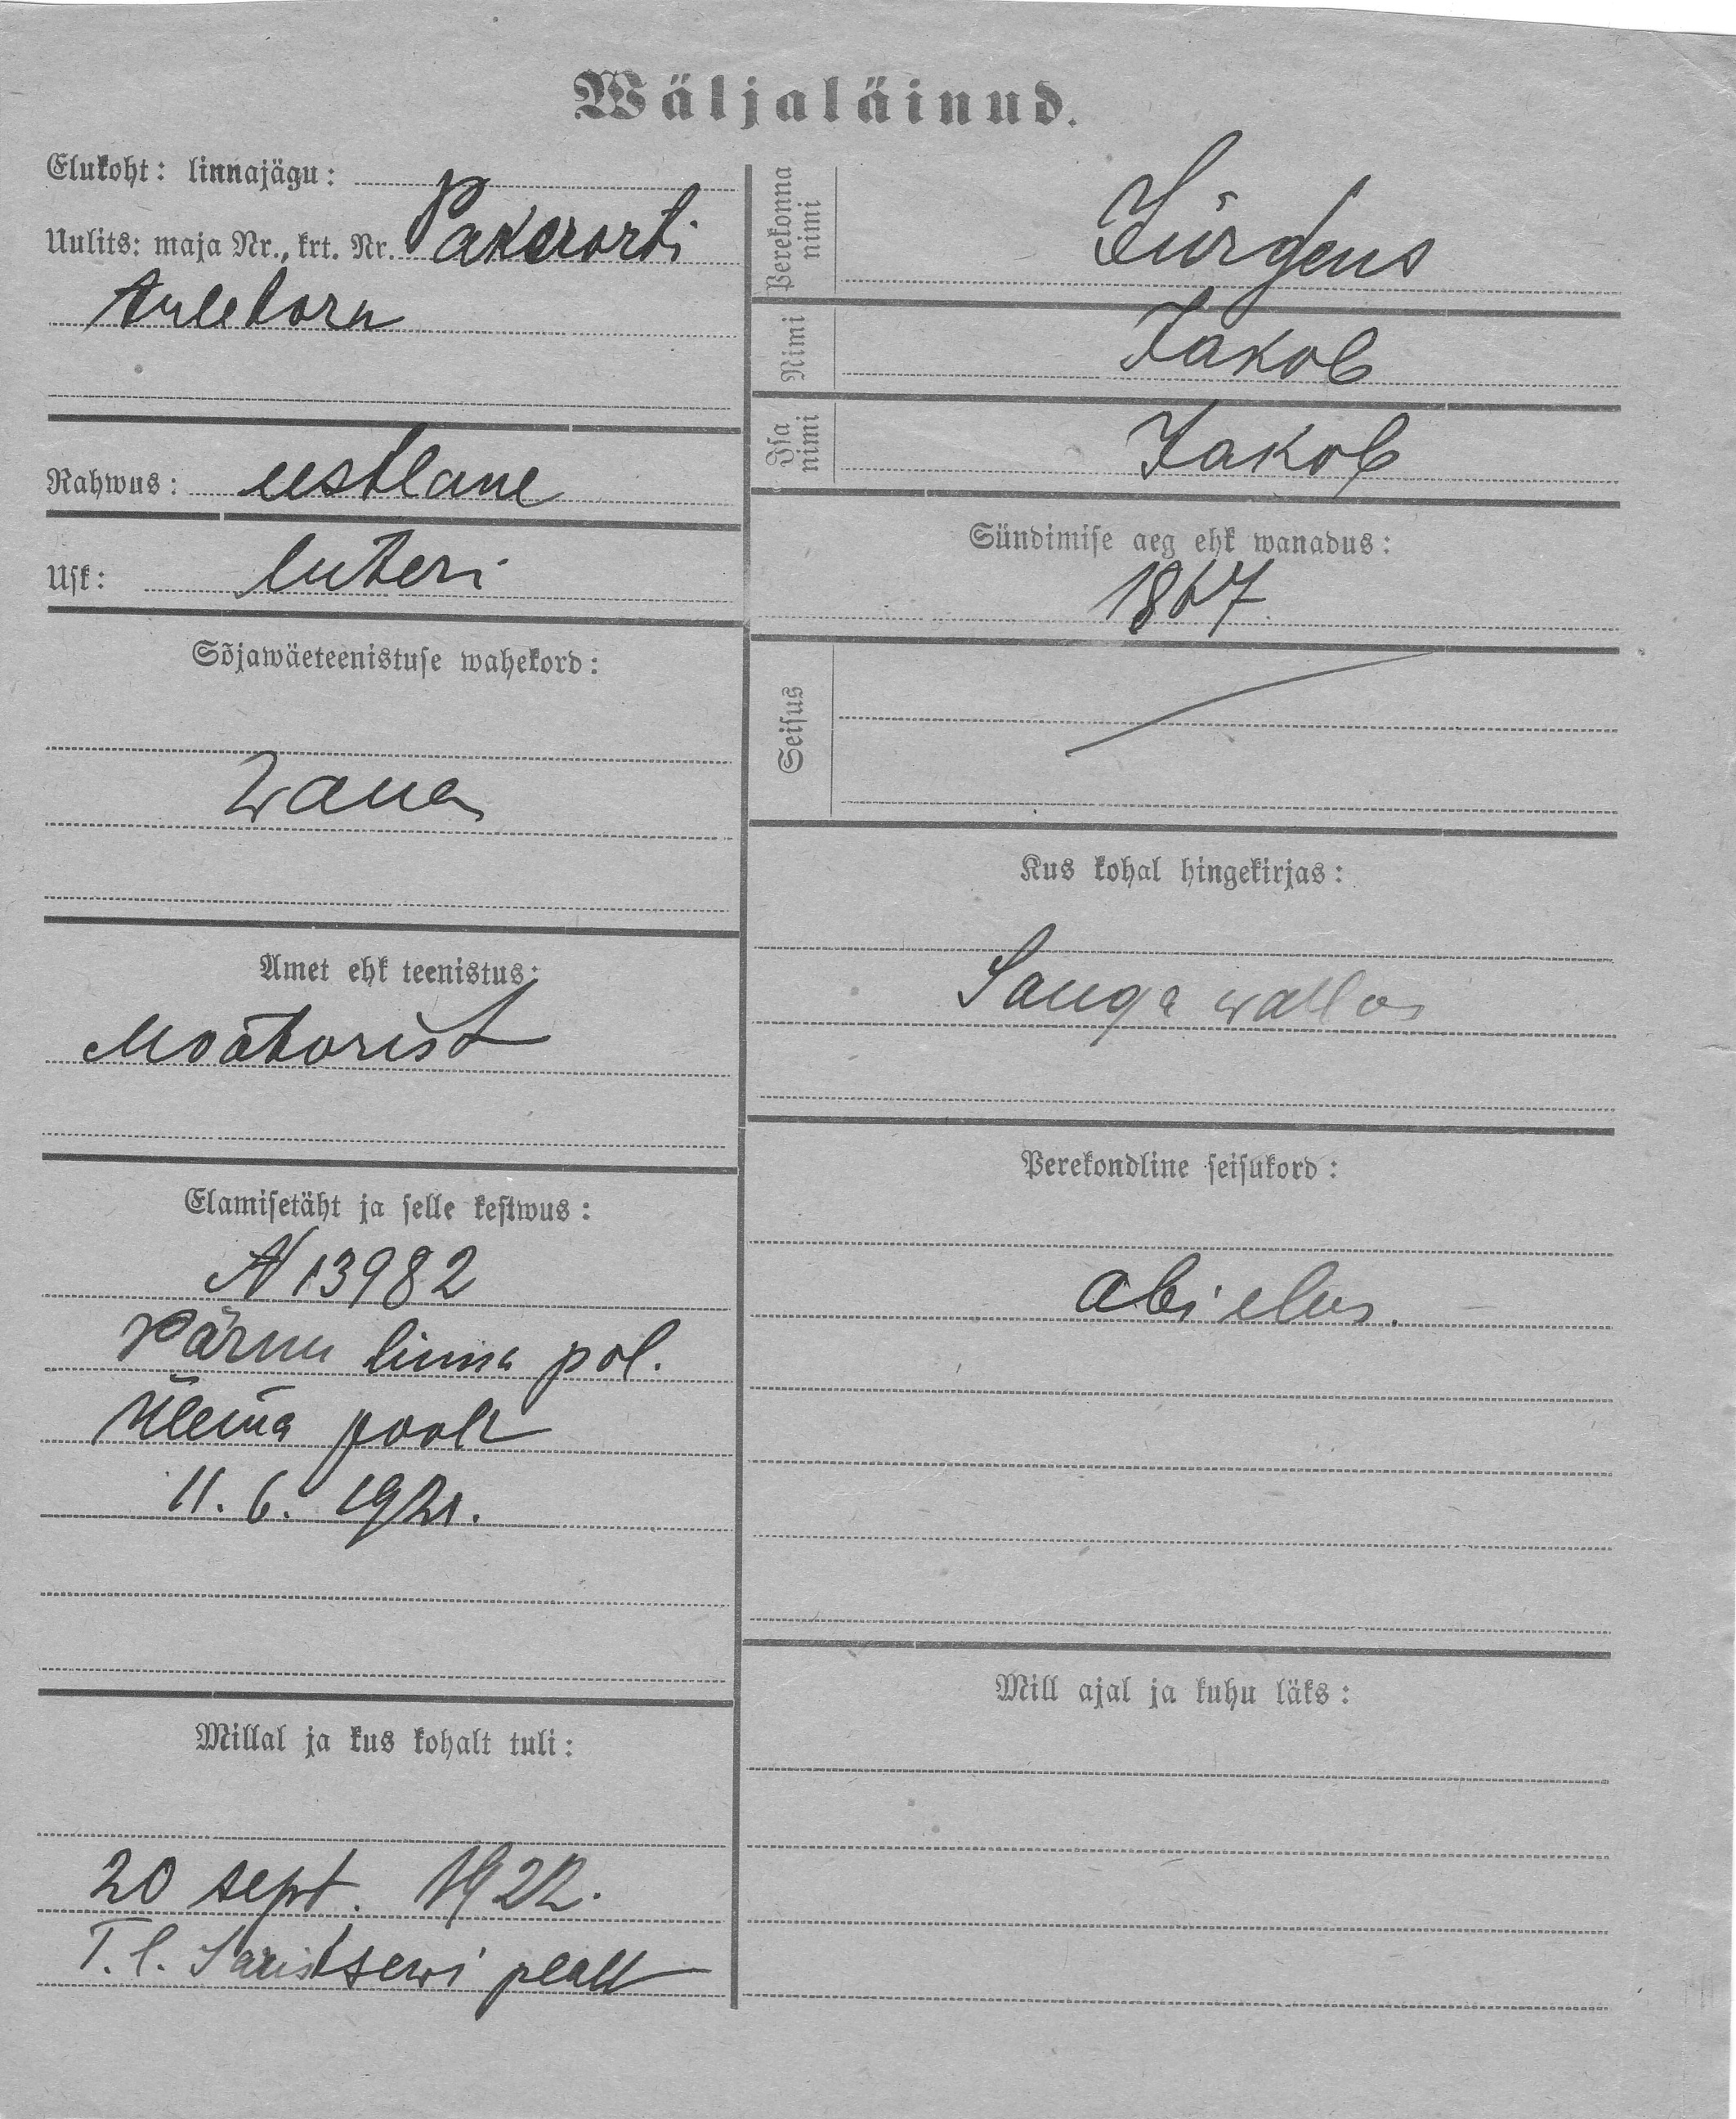 Wäljaläinud.
Elukoht: linnajägu:
Uulits: maja Nr., krt. Nr. Pakerorti
tuletorn
Rahwus: eestlane
Usk: luteri
Sõjawäeteenistuse wahekord:
wana
Amet ehk teenistus:
Mootorist
Elamisetäht ja selle kestwus:
N 13982
Pärnu linna pol.
ülema poolt
11. 6. 1921.
Millal ja kus kohalt tuli:
20 sept. 1922.
T. l. pealt
Perekonna nimi
Jürgens
Nimi
Jakob
Isa nimi
Jakob
Sündimise aeg ehk wanadus:
1867
Seisus
Kus kohal hingekirjas:
Sauga wallas
Perekondline seisukord:
abielus.
Mill ajal ja kuhu läks: